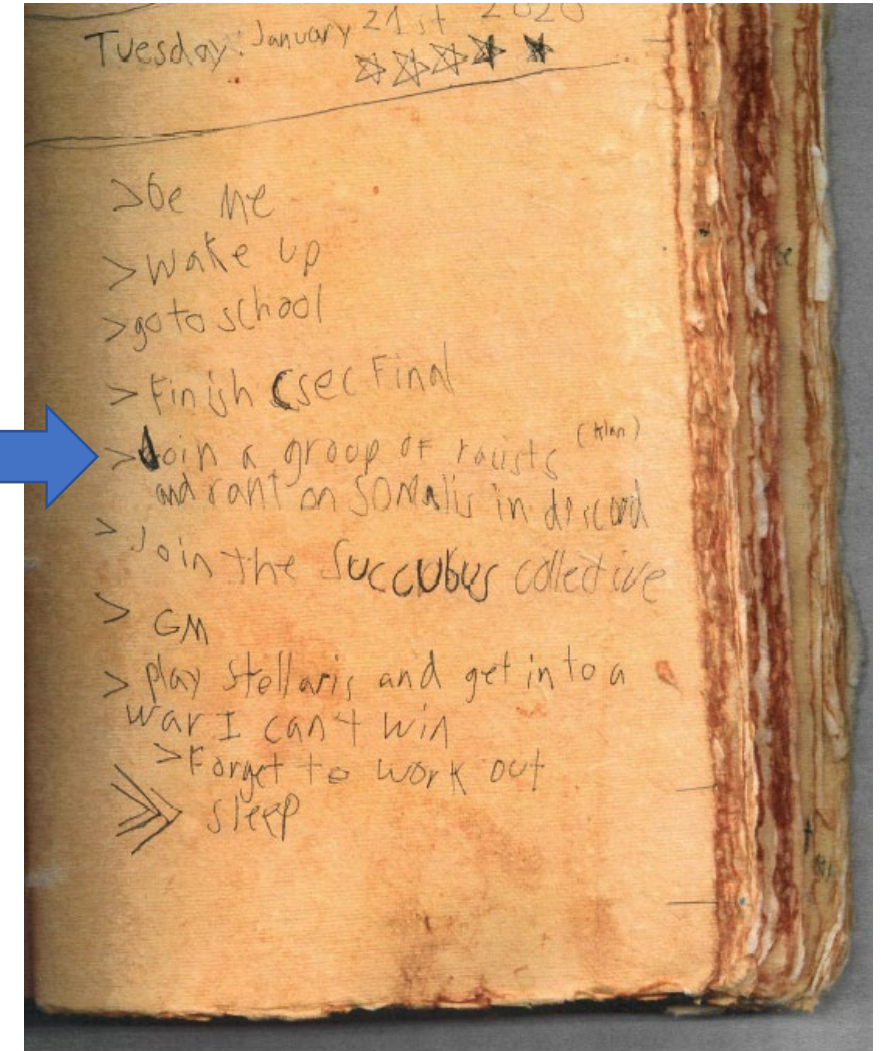 Tuesday: January 21st 2020
>be me
>wake up
>go to school
>Finish Csec Final
>Join a group of racists (Klan)
and rant on SOMalis in discord
> Join the Succubus collective
> GM
> play Stellaris and get into a
war I can't win
>Forget to work out
> sleep